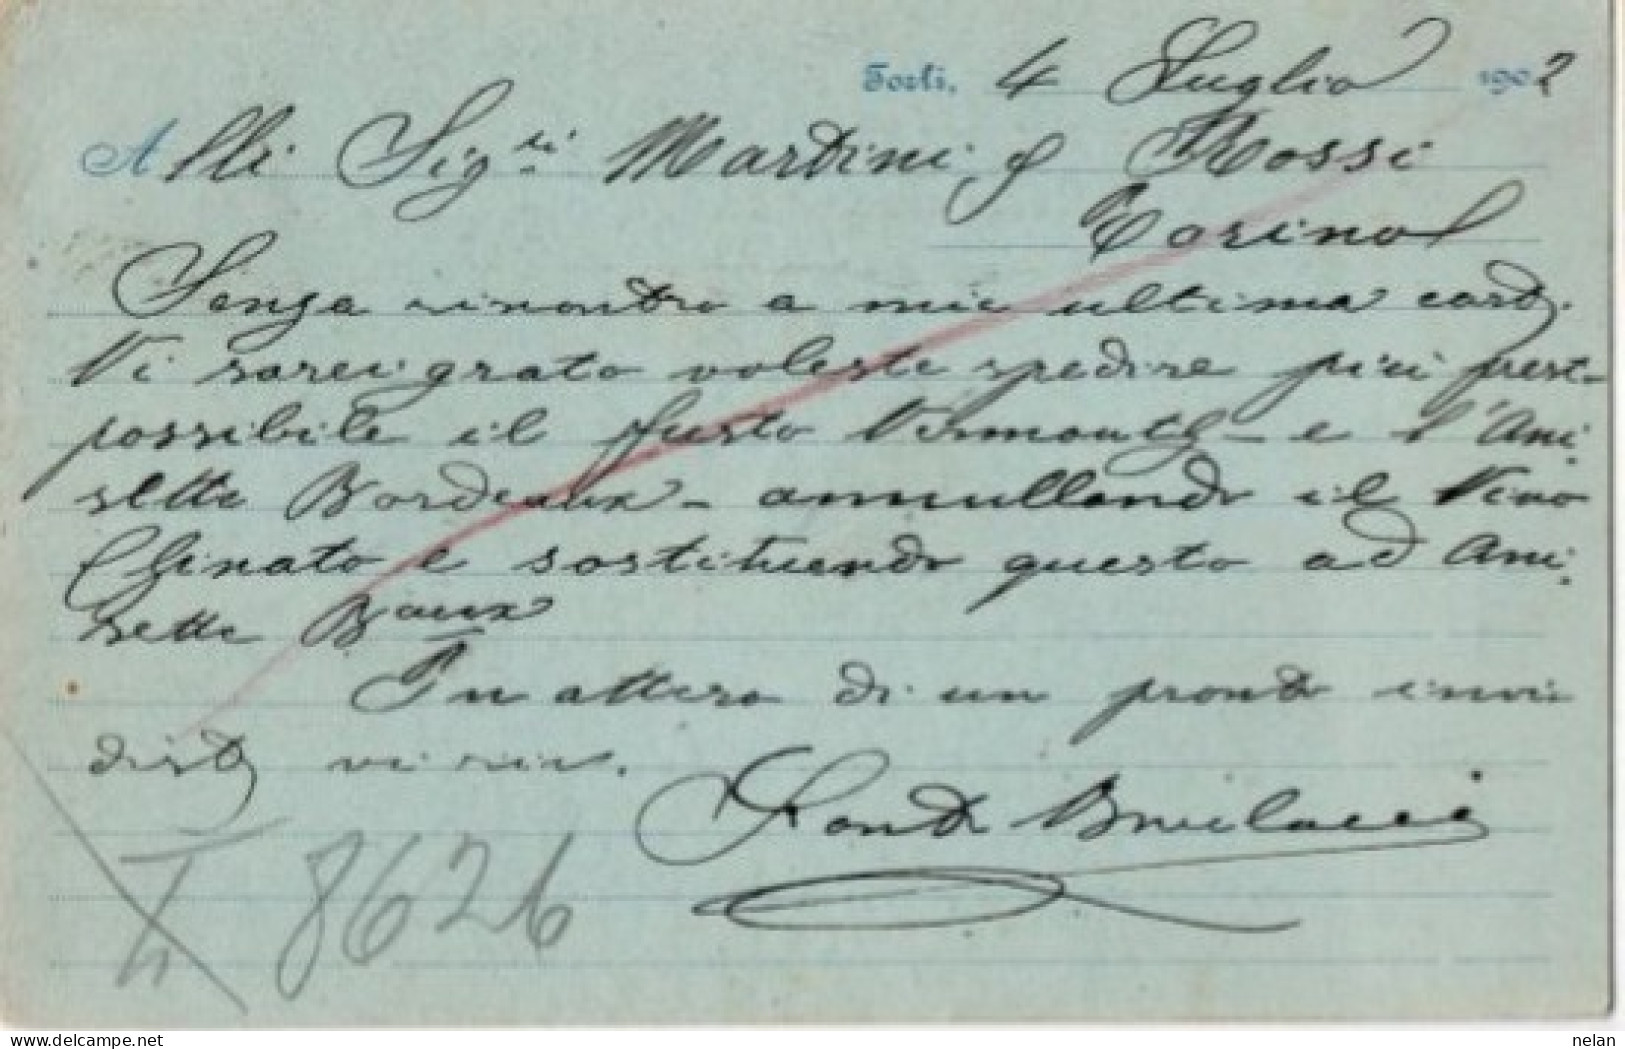 Forlì, 4 Luglio 1902
Alli Sig.ri Martini & Rossi
Torino
Senza riscontro a mie ultima cart.
Vi sarei grato voleste spedire più prest-
possibile il fusto Vermouth - e l'Ani.
sette Bordeaux - annullando il Vino
Chinato e sostituendo questo ad Ani.
sette Baux
In attesa di un pronto invio
vi riv.
8626
nelan